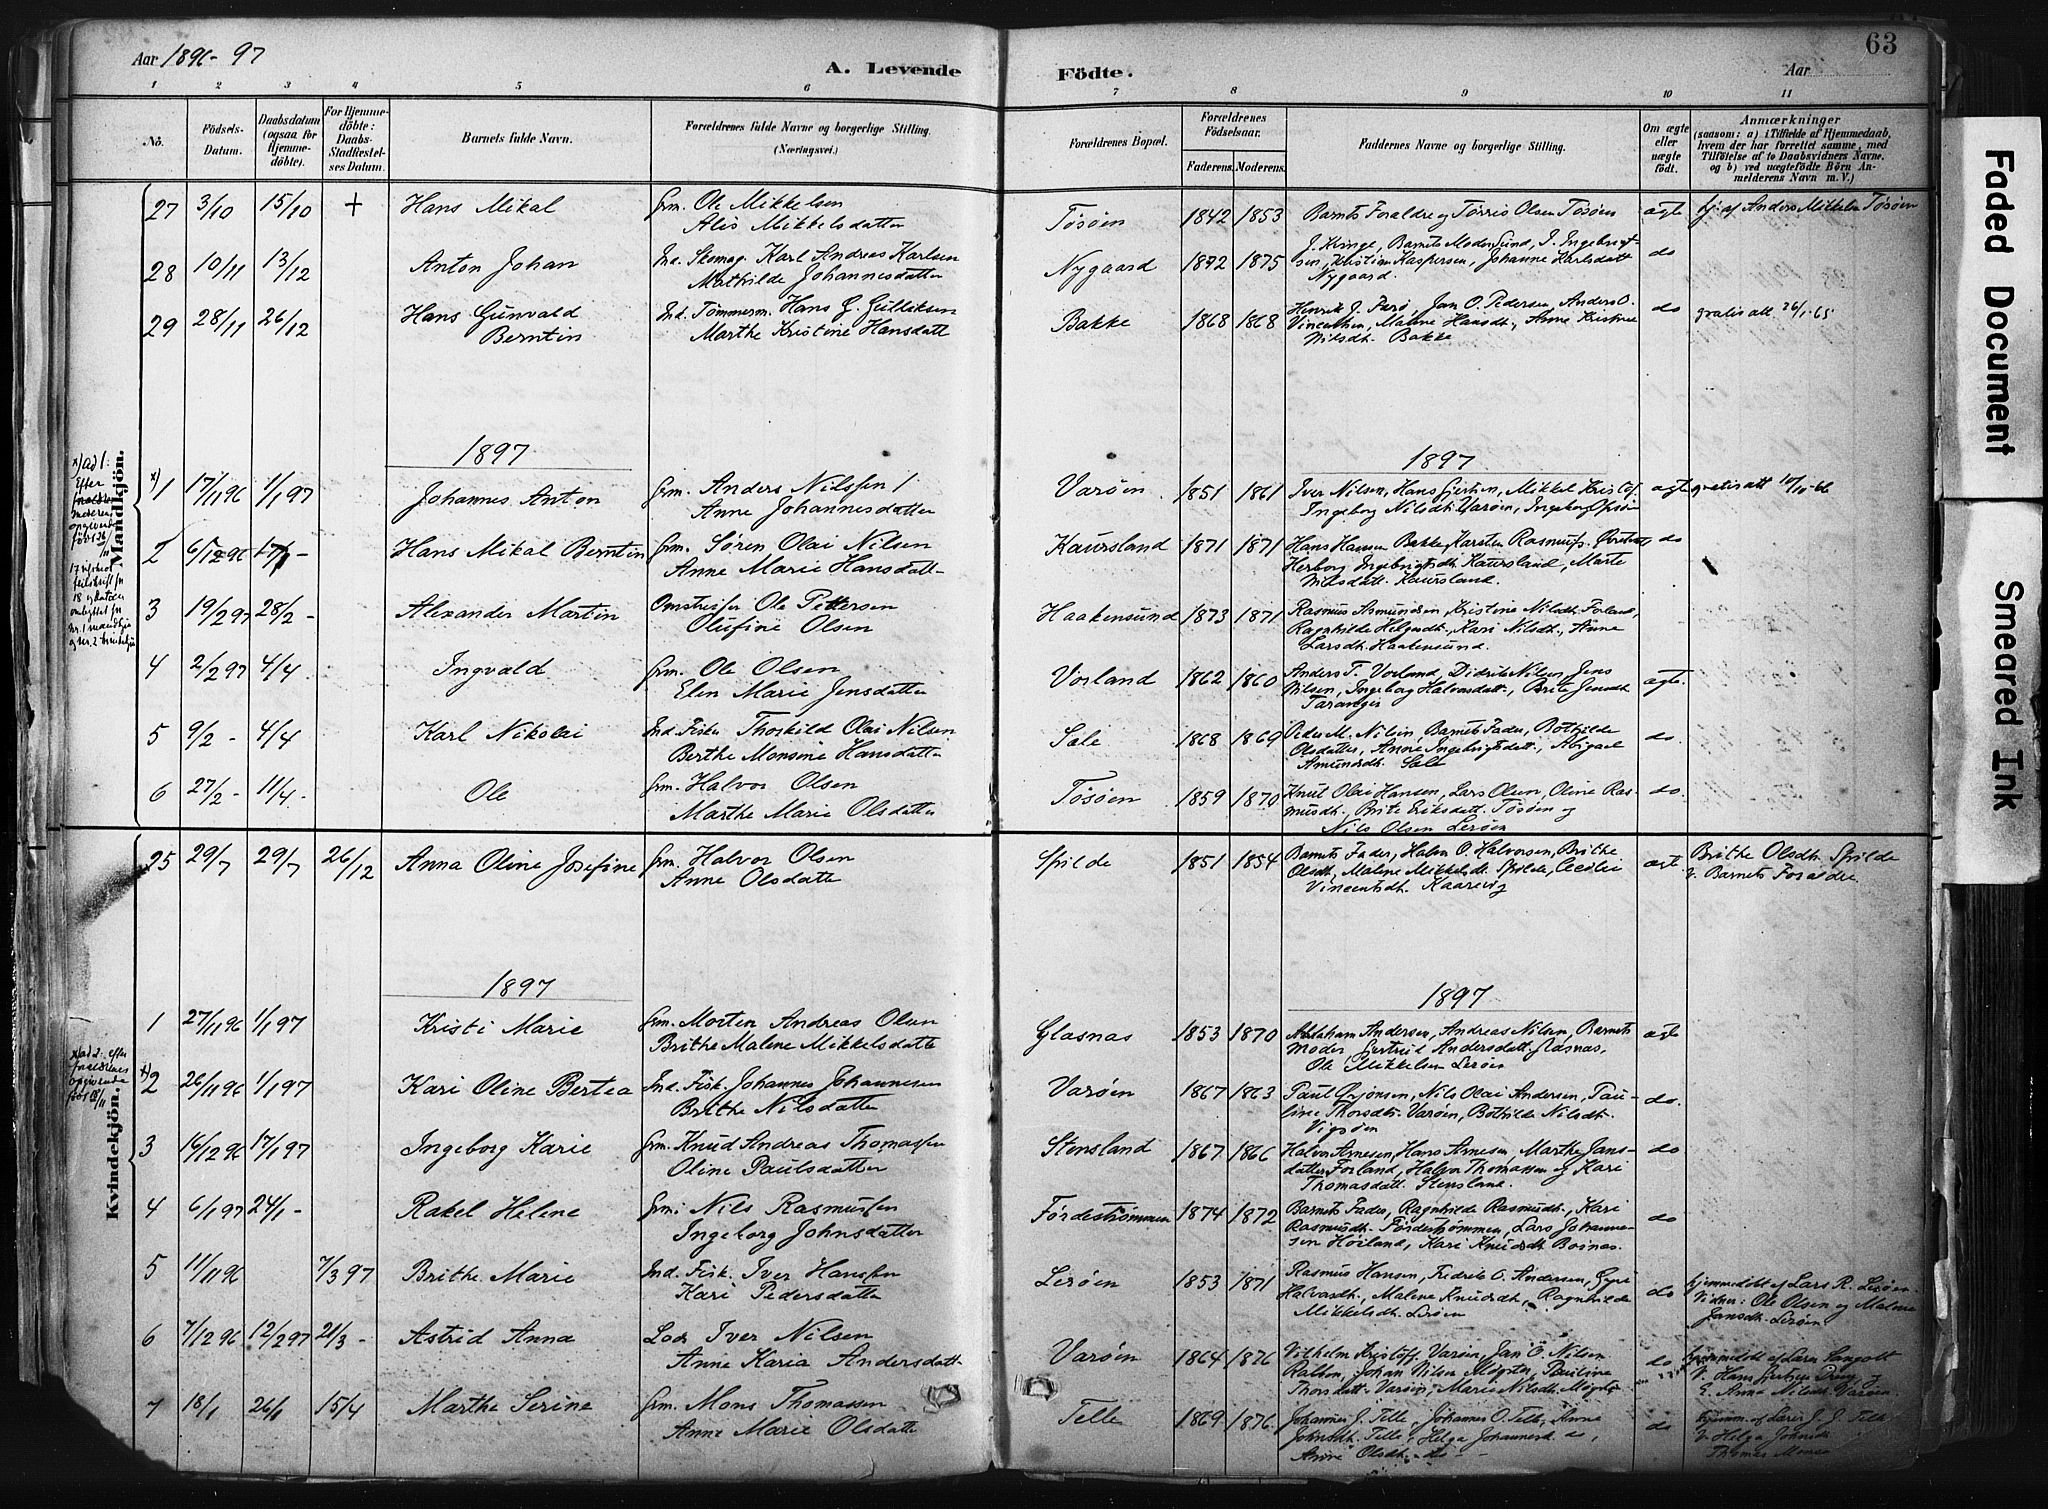 Aar 1896-97
A. Levende Födte.
Aar
63
1 2 3 4 5 6 7 8 9 10 11
No.
Födsels-Datum.
Daabsdatum (ogsaa for Hjemmedöbte).
For Hjemmedöbte: Daabs-Stadfæstelses Datum.
Barnets fulde Navn.
Forældrenes fulde Navne og borgerlige Stilling. (Næringsvei.)
Forældrenes Bopæl.
Forældrenes Födselsaar.
Faderens. Moderens.
Faddernes Navne og borgerlige Stilling.
Om ægte eller uægte födt.
Anmærkninger
(saasom: a) i Tilfælde af Hjemmedaab, hvem der har forrettet samme, med Tilföielse af to Daabsvidners Navne, og b) ved uægtefödte Börn Anmelderens Navn m. V.)
Mandkjön.
27 3/10 15/10 + Hans Mikal Grm. Ole Mikkelsen
Alis Mikkelsdatter
Tösöen 1842 1853 Barnets Forældre og Törris Olsen Tösöen ægte hj. af Anders Mikkelsn Tösöen
28 10/11 13/12 Anton Johan Ind. Skomag. Karl Andreas Karlsen
Mathilde Johannesdatter
Nygaard 1872 1875 J. Kvinge, Barnets Moder Sund, J. Ingebrigtsen, Kristian Kaspersen, Johanne Karlsdatt Nygaard. do
29 28/11 26/12 Hans Gunvald Berntin Ind. Tömmerm. Hans G. Gulliksen
Marthe Kristine Hansdatt
Bakke 1868 1868 Henrik J. Færö, Jan O. Pedersen, Anders O. Vincentsen, Malene Hansdt., Anne Kristine Nilsdt. Bakke do gratis att. 26/1-65
1897
1897
x) ad 1: Efter
moderens opgivende
x) 1 17/11 96 1/1 97 Johannes Anton Grm. Anders Nilssen
Anne Johannesdatter
Varöen 1851 1861 Iver Nilsen, Hans Gjertsen, Mikkel Kristof.
Ingeborg Nilsdt. Varöen, Ingeborg ægte gratis att 10/10-66
2 6/12 96 17/1 - Hans Mikal Berntin Grm. Sören Olai Nilsen
Anne Marie Hansdatt.
Kaursland 1871 1871 Hans Hansen Bakke, Karsten Rasmuss.
Herborg Ingebrigtsdt. Kaursland, Marte
Nilsdatt. Kaursland. do
3 19/2 97 28/2 - Alexander Martin Omstreifer Ole Pettersen
Olufine Olsen
Haakensund 1873 1871 Rasmus Asmundsen, Kristine Nilsdt. Forland,
Ragnhilde Helgesdt., Kari Nilsdt., Anne
Larsdt. Haakensund.
4 2/2 97 4/4 Ingvald Grm. Ole Olsen
Elen Marie Jensdatter
Vorland 1862 1860 Anders T. Vorland, Didrik Nilsen, Jens
Nilsen, Ingeborg Halvorsdatt., Brite Jensdt.
Taranger ægte.
5 9/2 - 4/4 Karl Nikolai Ind. Fisker Thorkild Olai Nilsen
Berthe Monsine Hansdatter
Sale 1868 1869 Peder M. Nilsen, Barnets Fader, Bothilde
Olsdatter, Anne Ingebrigtsdatt., Abigael
Amundsdt. Sale do.
6 27/2 - 11/4 - Ole Grm. Halvor Olsen
Marthe Marie Olsdatter
Tösöen 1859 1870 Knut Olai Hansen, Lars Olsen, Oline Ras-
musdt., Brite Eriksdatt. Tösöen og
Nils Olsen Leröen do.
Kvindekjön.
25 29/7 29/7 26/12 Anna Oline Josefine Grm. Halvor Olsen
Anne Olsdatter
Spilde 1851 1854 Barnets Fader, Halvor O. Halvorsen, Brithe
Olsdt., Malene Mikkelsdt. Spilde, Cecilie
Vincentsdt. Kaarevig ægt Brithe Olsdt. Spilde
v. Barnets Forældre.
1897
1897
1 27/11 96 1/1 97 Kristi Marie Grm. Morten Andreas Olsen
Brithe Malene Mikkelsdatte
Glasnæs 1853 1870 Abraham Andersen, Andreas Nilsen, Barnets
Moder, Gjertrud Andersdatt. Glasnæs,
Ole Mikkelsen Leröen ægte
x) ad 2: efter
forældrenes
opgivende
x) 2 26/11 96 1/1 97 Kari Oline Bertea Ind. Fisk. Johannes Johannesen
Brithe Nilsdatter
Varöen 1867 1863 Paul Örjansen, Nils Olai Andersen, Pau-
line Thorsdt. Varöen, Bothilde Nilsdt.
Vigsöen do.
3 14/12 96 17/1 97 Ingeborg Karie Grm. Knud Andreas Thomassen
Oline Paulsdatter
Stensland 1867 1866 Halvor Arnesen, Hans Arnesen, Marthe Jans-
datter Forland, Halvor Thomassen og Kari
Thomasdatt. Stensland. do
4 6/1 97 24/1 - Rakel Helene Grm: Nils Rasmussen
Ingeborg Johnsdatter
Fördeströmmen 1874 1872 Barnets Fader, Ragnhilde Rasmusdt., Kari
Rasmusdt. Fördeströmmen, Lars Johanne-
sen Höiland, Kari Knudsdt. Boinæs. do
5 11/11 96 7/3 97 Brithe Marie Ind. Fisk. Iver Hanssen
Kari Pedersdatter
Leröen 1853 1871 Rasmus Hansen, Fredrik O. Andersen, Guri
Halvorsdt., Malene Knudsdt., Ragnhilde
Mikkelsdt. Leröen do hjemmedöbt af Lars R. Leröen.
Vidner: Ole Olsen og Malene
Jansdt. Leröen
6 7/12 96 12/2 97 21/3 - Astrid Anna Lods Iver Nilsen
Anne Karia Andersdatt.
Varöen 1864 1876 Vilhelm Kristoff. Varöen, Jan O. Nilsen
Johan Nilsen Mögster, Pauline
Thorsdatt. Varöen, Marie Nilsdt. Mögster do hjemmedöbt af
V. Hans Gjertsen og
E. Anna Nilsdt. Varöen
7 18/1 26/1 15/4 Marthe Serine Grm. Mons Thomassen
Anne Marie Olsdatter
Telle 1869 1876 Johannes J. Telle, Johannes O. Telle, Anne
Johnsdt. Telle, Helga Johannesd. do,
Anne Olsdt. do - do hjemm. af Lars J. J. Telle
V. Helga Johnsdt.
Thomas Monsen
Faded Document
Smeared Ink